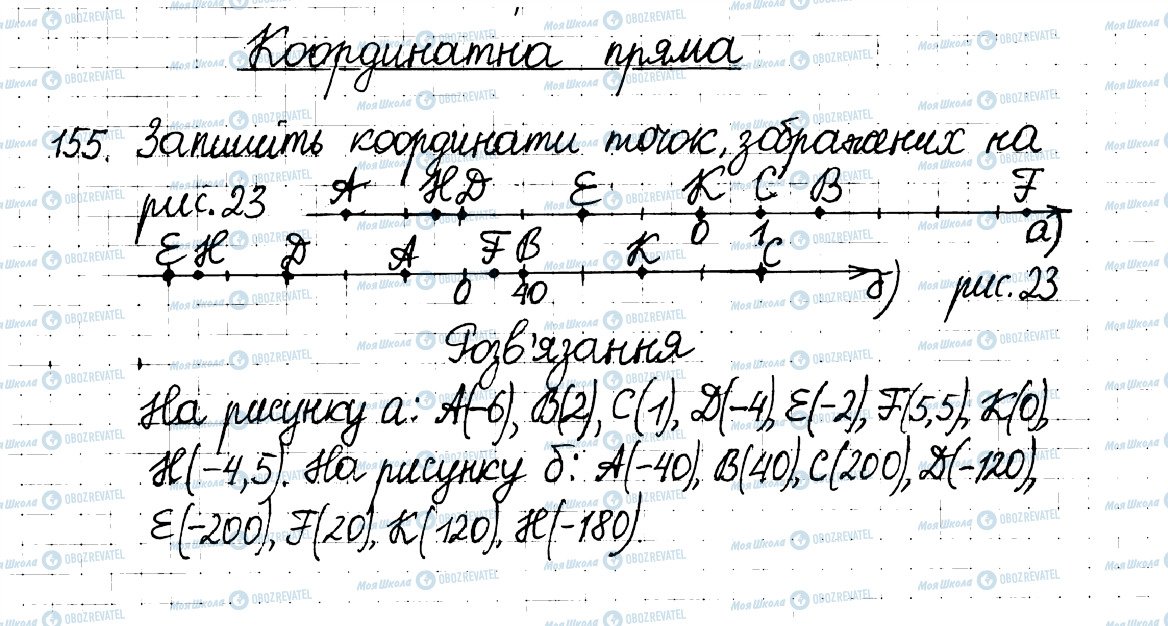 Координатна пряма
155. Запишіть координати точок, зображених на
рис. 23
A H D E K C B F
0 1 а)
E H D A F B K C
0 40 б) рис. 23
Розв'язання
На рисунку а: A(-6), B(2), C(1), D(-4), E(-2), F(5,5), K(0),
H(-4,5). На рисунку б: A(-40), B(40), C(200), D(-120),
E(-200), F(20), K(120), H(-180).